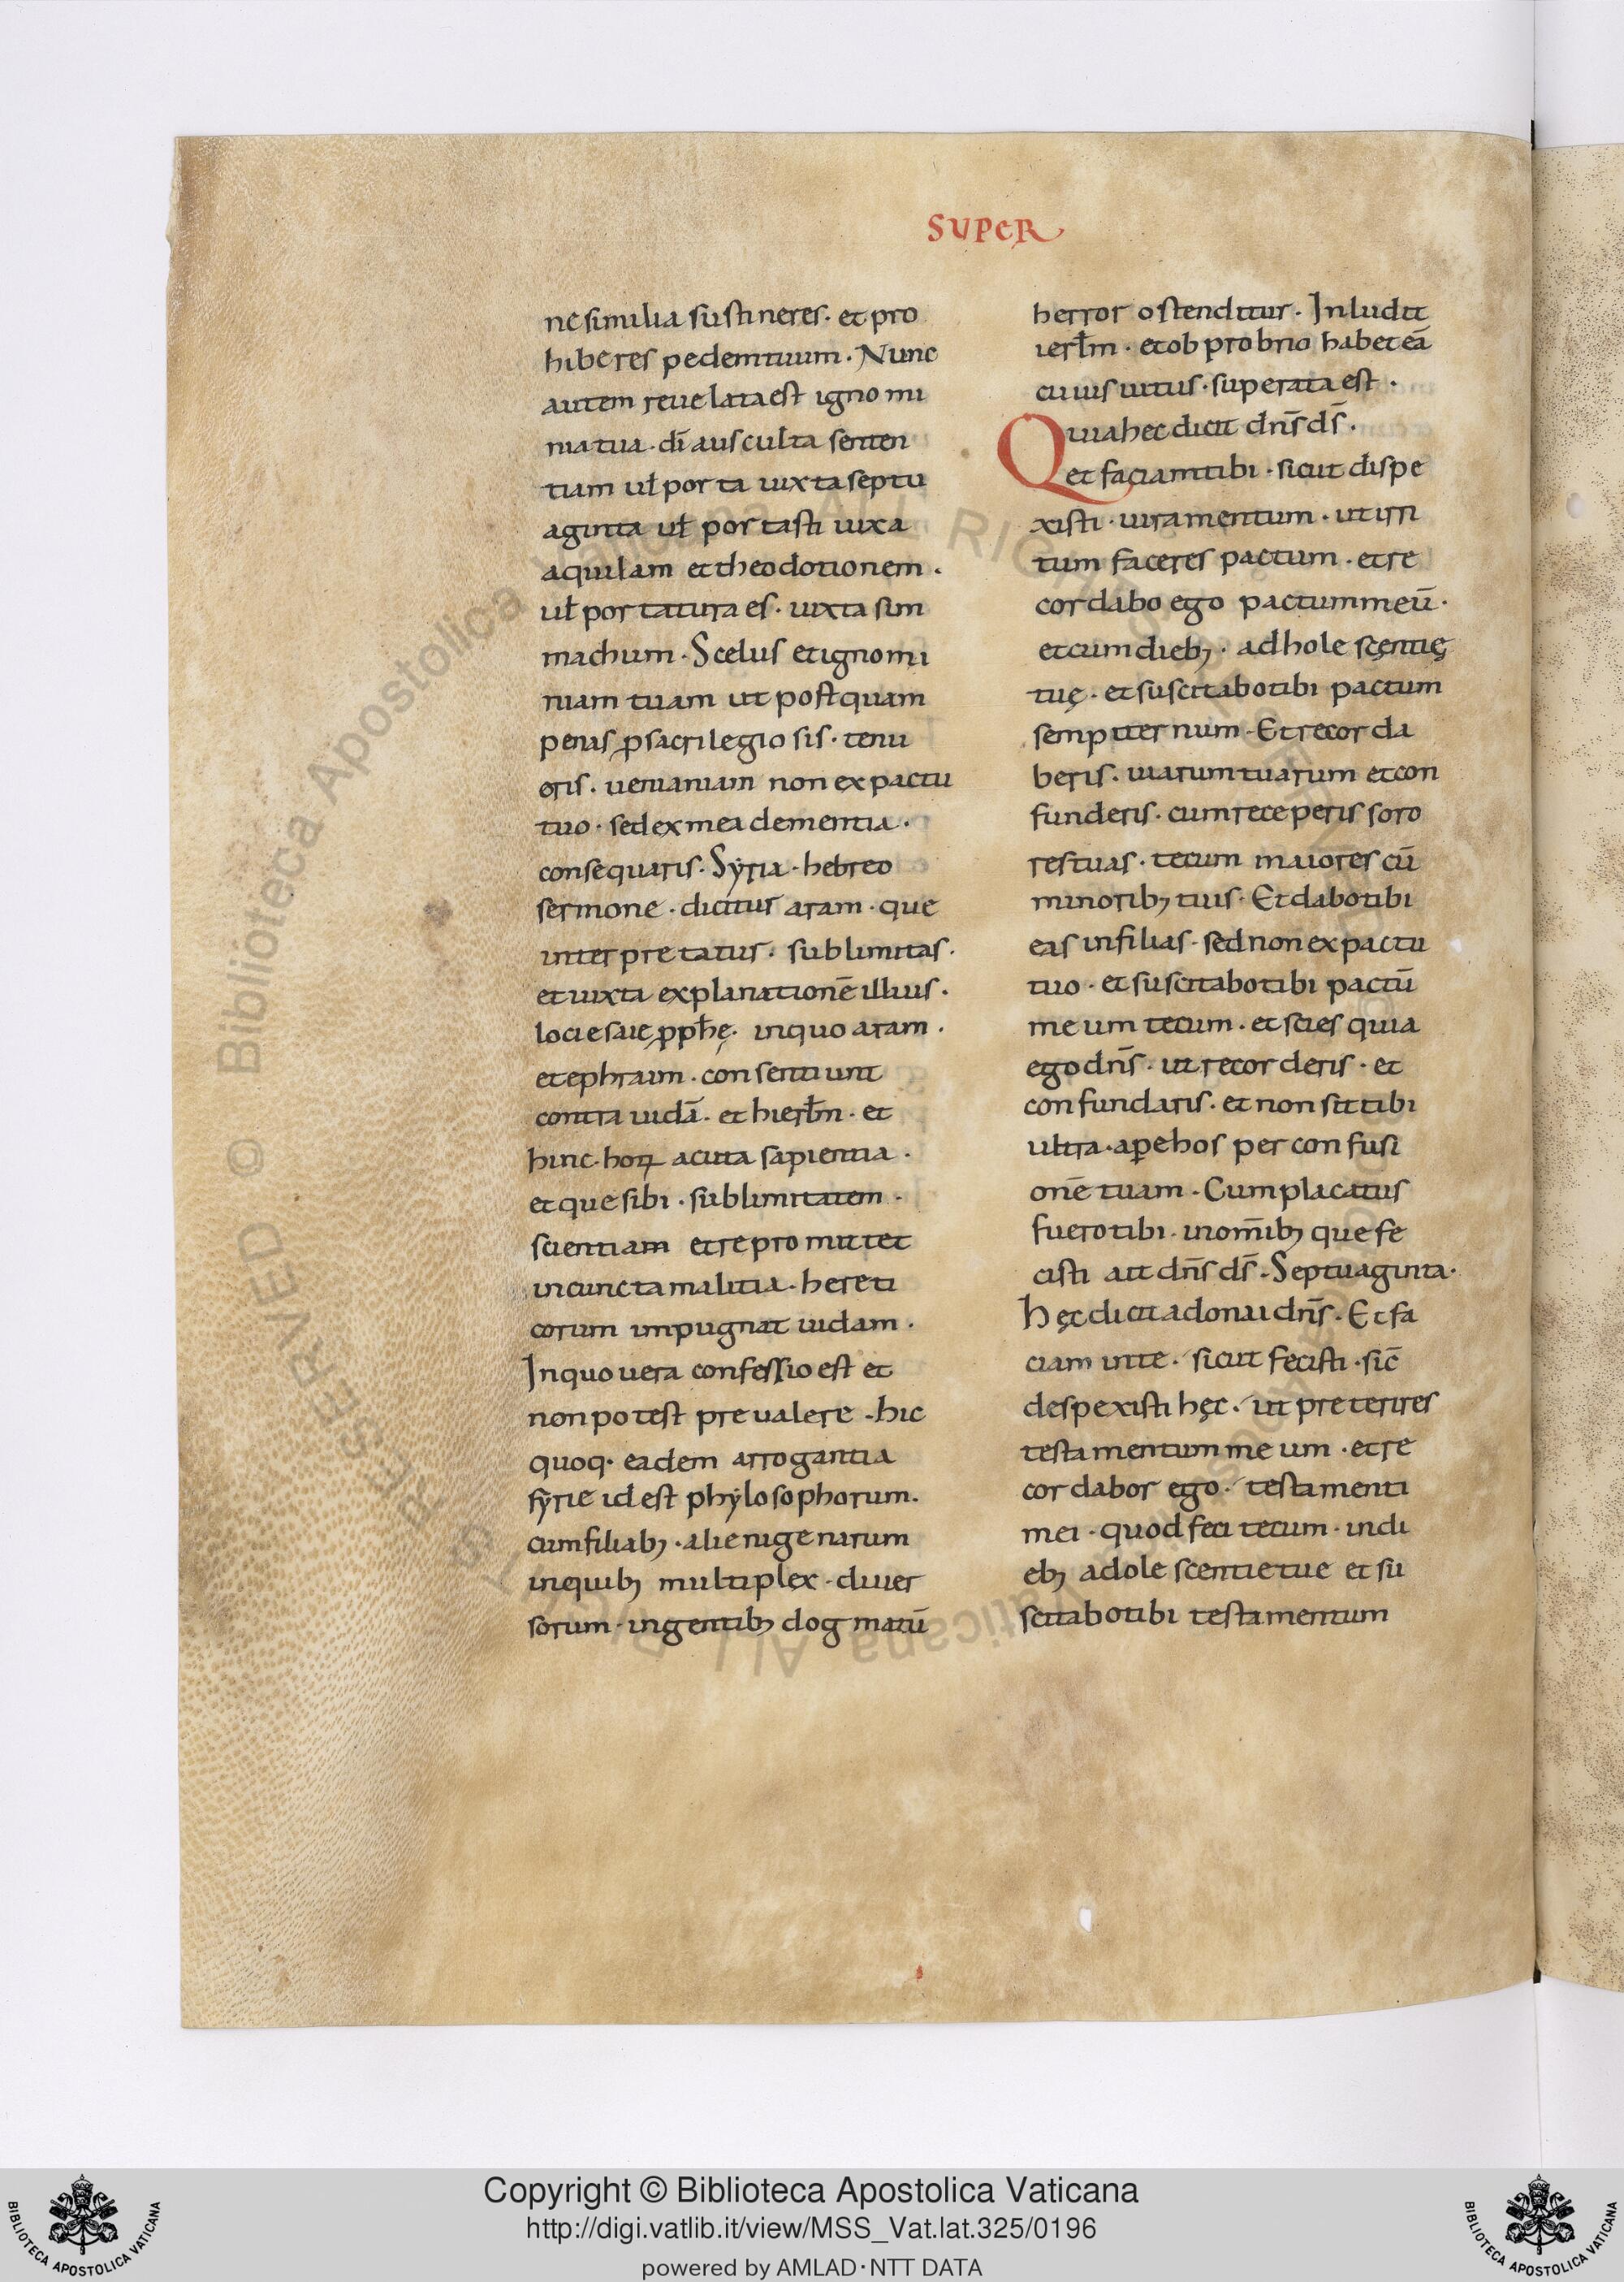 SUPER
ne similia sustineres · et pro
hiberes pedem tuum · Nunc
autem reuelata est ignomi
nia tua · dī ausculta senten
tiam uł porta iuxta septu
aginta uł portasti iuxa
aquilam et theodotionem ·
uł portatura es · iuxta sim
machum · Scelus et ignomi
niam tuam ut postquam
penas ꝓ sacrilegio sis · tenu
eris · ueniam non ex pactu
tuo · sed ex mea clementia ·
consequaris · Sẏria · hebreo
sermone · dicitur aram · que
interpretatur · sublimitas ·
et iuxta explanationē illius ·
loci esaie ꝓpħę · in quo aram ·
et ephraim · consentiunt
contra iudā · et hierłm · et
hinc · hoꝝ acuta sapientia ·
et que sibi · sublimitatem ·
scientiam et repromittet
in cuncta malitia · hereti
corum impugnat iudam ·
In quo uera confessio est et
non potest preualere · hic
quoq· eadem arrogantia
sẏrie id est phẏlosophorum ·
cum filiabꝫ · alienigenarum
in quibꝫ multiplex · diuer
sorum · in gentibꝫ dogmatū
herror ostenditur · Inludit
ierłm · et obprobrio habet eā
cuius uitus · superata est ·
Quia hec dicit dn̄s ds̄ ·
et faciam tibi · sicut dispe
xisti · iuramentum · ut irri
tum faceres pactum · et re
cordabo ego pactum meū ·
et cum diebꝫ · adholescentię
tuę · et suscitabo tibi pactum
sempiternum · Et recorda
beris · uiarum tuarum et con
funderis · cum receperis soro
res tuas · tecum maiores cū
minoribꝫ tuis · Et dabo tibi
eas in filias · sed non ex pactu
tuo · et suscitabo tibi pactū
meum tecum · et scies quia
ego dn̄s · ut recorderis · et
confundaris · et non sit tibi
ultra · aꝑehos per confusi
onē tuam · Cum placatus
fuero tibi · in om̄ibꝫ que fe
cisti ait dn̄s ds̄ · Septuaginta ·
Hęc dicit adonai dn̄s · Et fa
ciam in te · sicut fecisti · sic̄
despexisti hęc · ut preterires
testamentum meum · et re
cordabor ego · testamenti
mei · quod feci tecum · in di
ebꝫ adolescentie tue et su
scitabo tibi testamentum
Copyright © Biblioteca Apostolica Vaticana
http://digi.vatlib.it/view/MSS_Vat.lat.325/0196
powered by AMLAD·NTT DATA
BIBLIOTECA APOSTOLICA VATICANA
BIBLIOTECA APOSTOLICA VATICANA